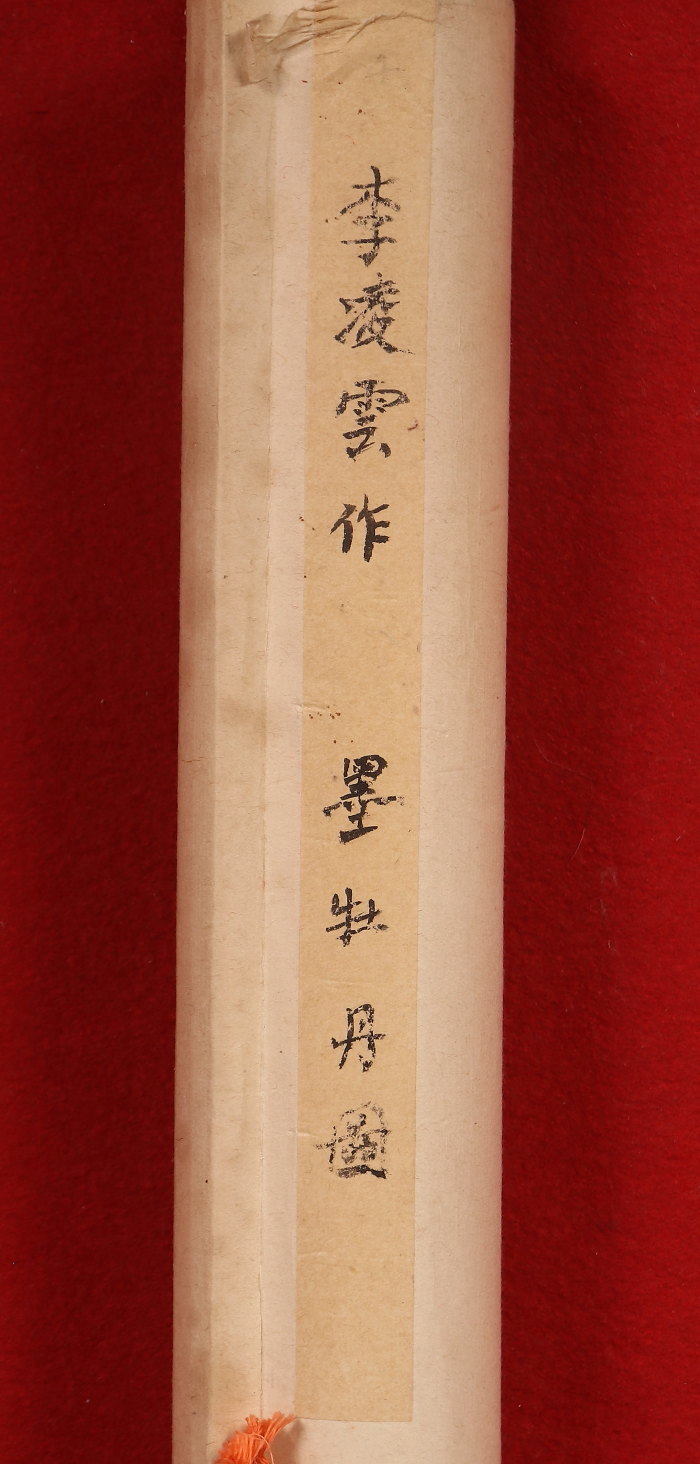 李凌雲作 墨牡丹圖